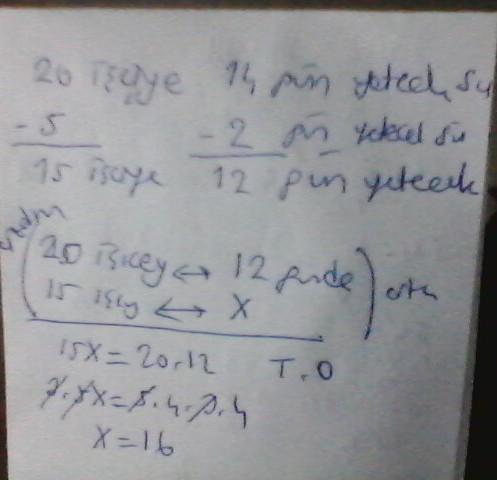 20 işçiye 14 gün yetecek su
- 5 - 2 gün yetecek su
15 işçiye 12 gün yetecek
20 işçiy ↔ 12 günde
15 işçiy ↔ X
15X = 20.12 T.O
3.5X = 5.4.3.4
X = 16